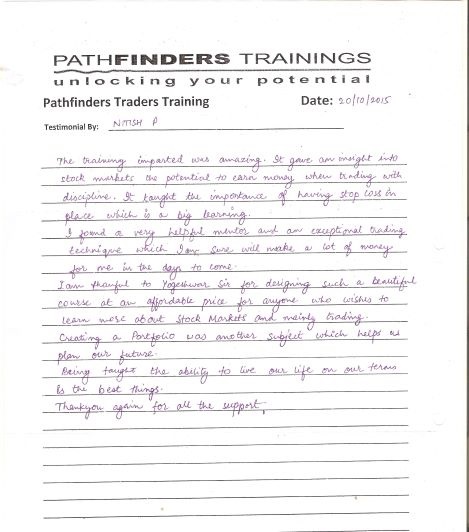 PATHFINDERS TRAININGS
unlocking your potential
Pathfinders Traders Training Date: 20/10/2015
Testimonial By: NITISH P
The training imparted was amazing. It gave an insight into
stock markets the potential to earn money when trading with
discipline. It taught the importance of having stop loss in
place which is a big learning.
I found a very helpful mentor and an exceptional trading
technique which I am sure will make a lot of money
for me in the days to come.
I am thankful to Yogeshwar Sir for designing such a beautiful
course at an affordable price for anyone who wishes to
learn more about Stock Markets and mainly trading.
Creating a Portfolio was another subject which helps us
plan our future.
Being taught the ability to live our life on our terms
is the best things.
Thankyou again for all the support,